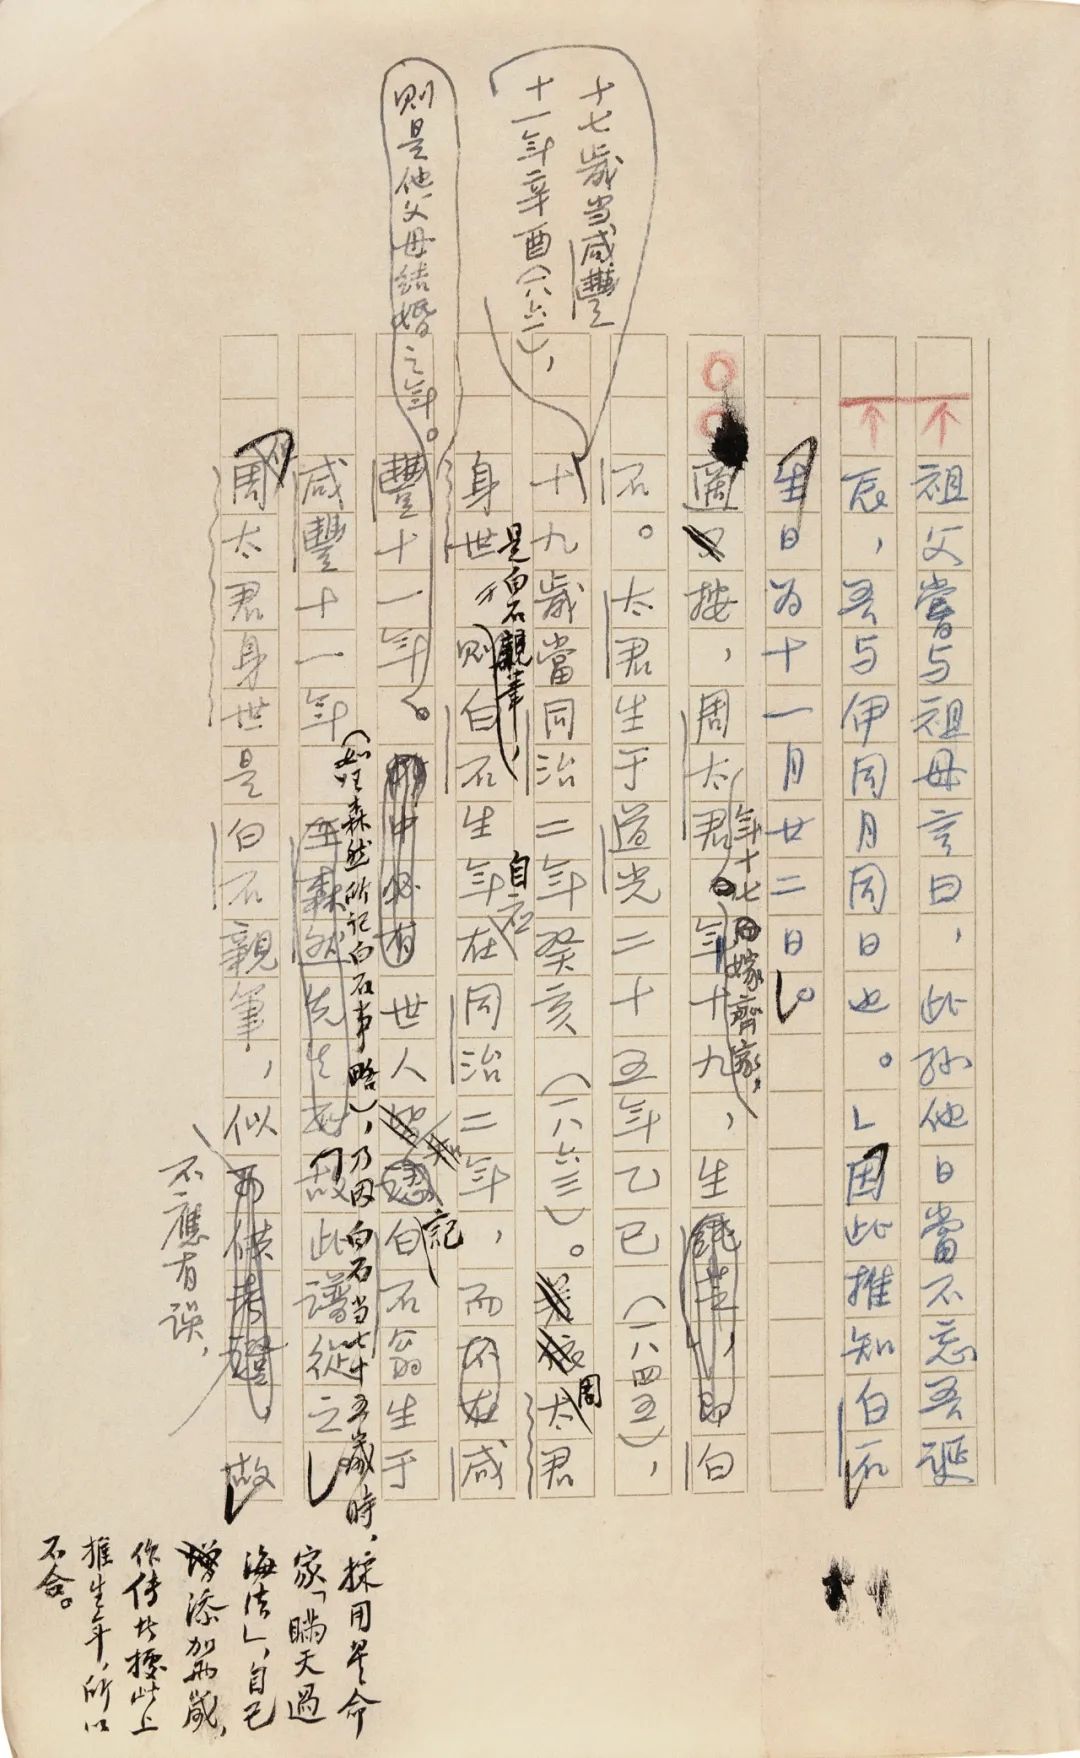 祖父嘗与祖母言曰，此孙他日當不忘吾誕
辰，吾与伊同月同日也。」因此推知白石
生日为十一月廿二日。
按，周太君年十九，生純芝，即白
年十七歸嫁齊家，
石。太君生于道光二十五年乙巳（一八四五），
十七歲当咸豐
十一年辛酉（一八六一），
十九歲當同治二年癸亥（一八六三）。周太君
身世是白石親筆，則白石生年自在同治二年，而不在咸
則是他父母结婚之年。
豐十一年。世人記白石翁生于
咸豐十一年（如王森然所記白石事略），乃因白石当七十五歲時，採用星命
家「瞞天過
海法」，自己
增添加兩歲，
作传者據此上
推生年，所以
不合。
王森然先生故此譜從之
周太君身世是白石親筆，似可供考證，故
不應有误，